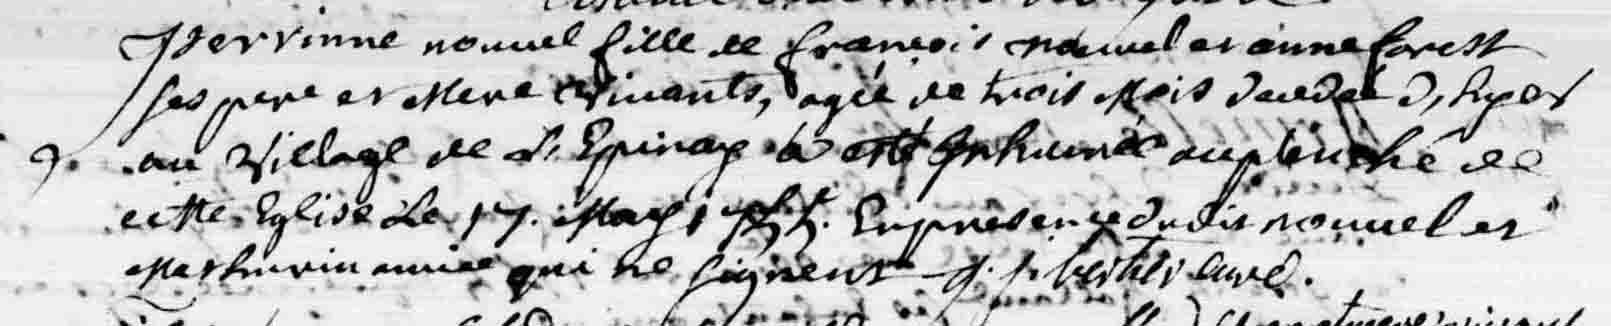 Perrinne nouuel fille de françois nouuel et anne forest
ses pere et Mere vivants, agée de trois Mois decedée d'hyer
au village de L'Epinay a esté Inhumée au planché de
cette Eglise Le 17. May Enpresence dudit nouuel et
Mathurin qui ne signent J. curé.